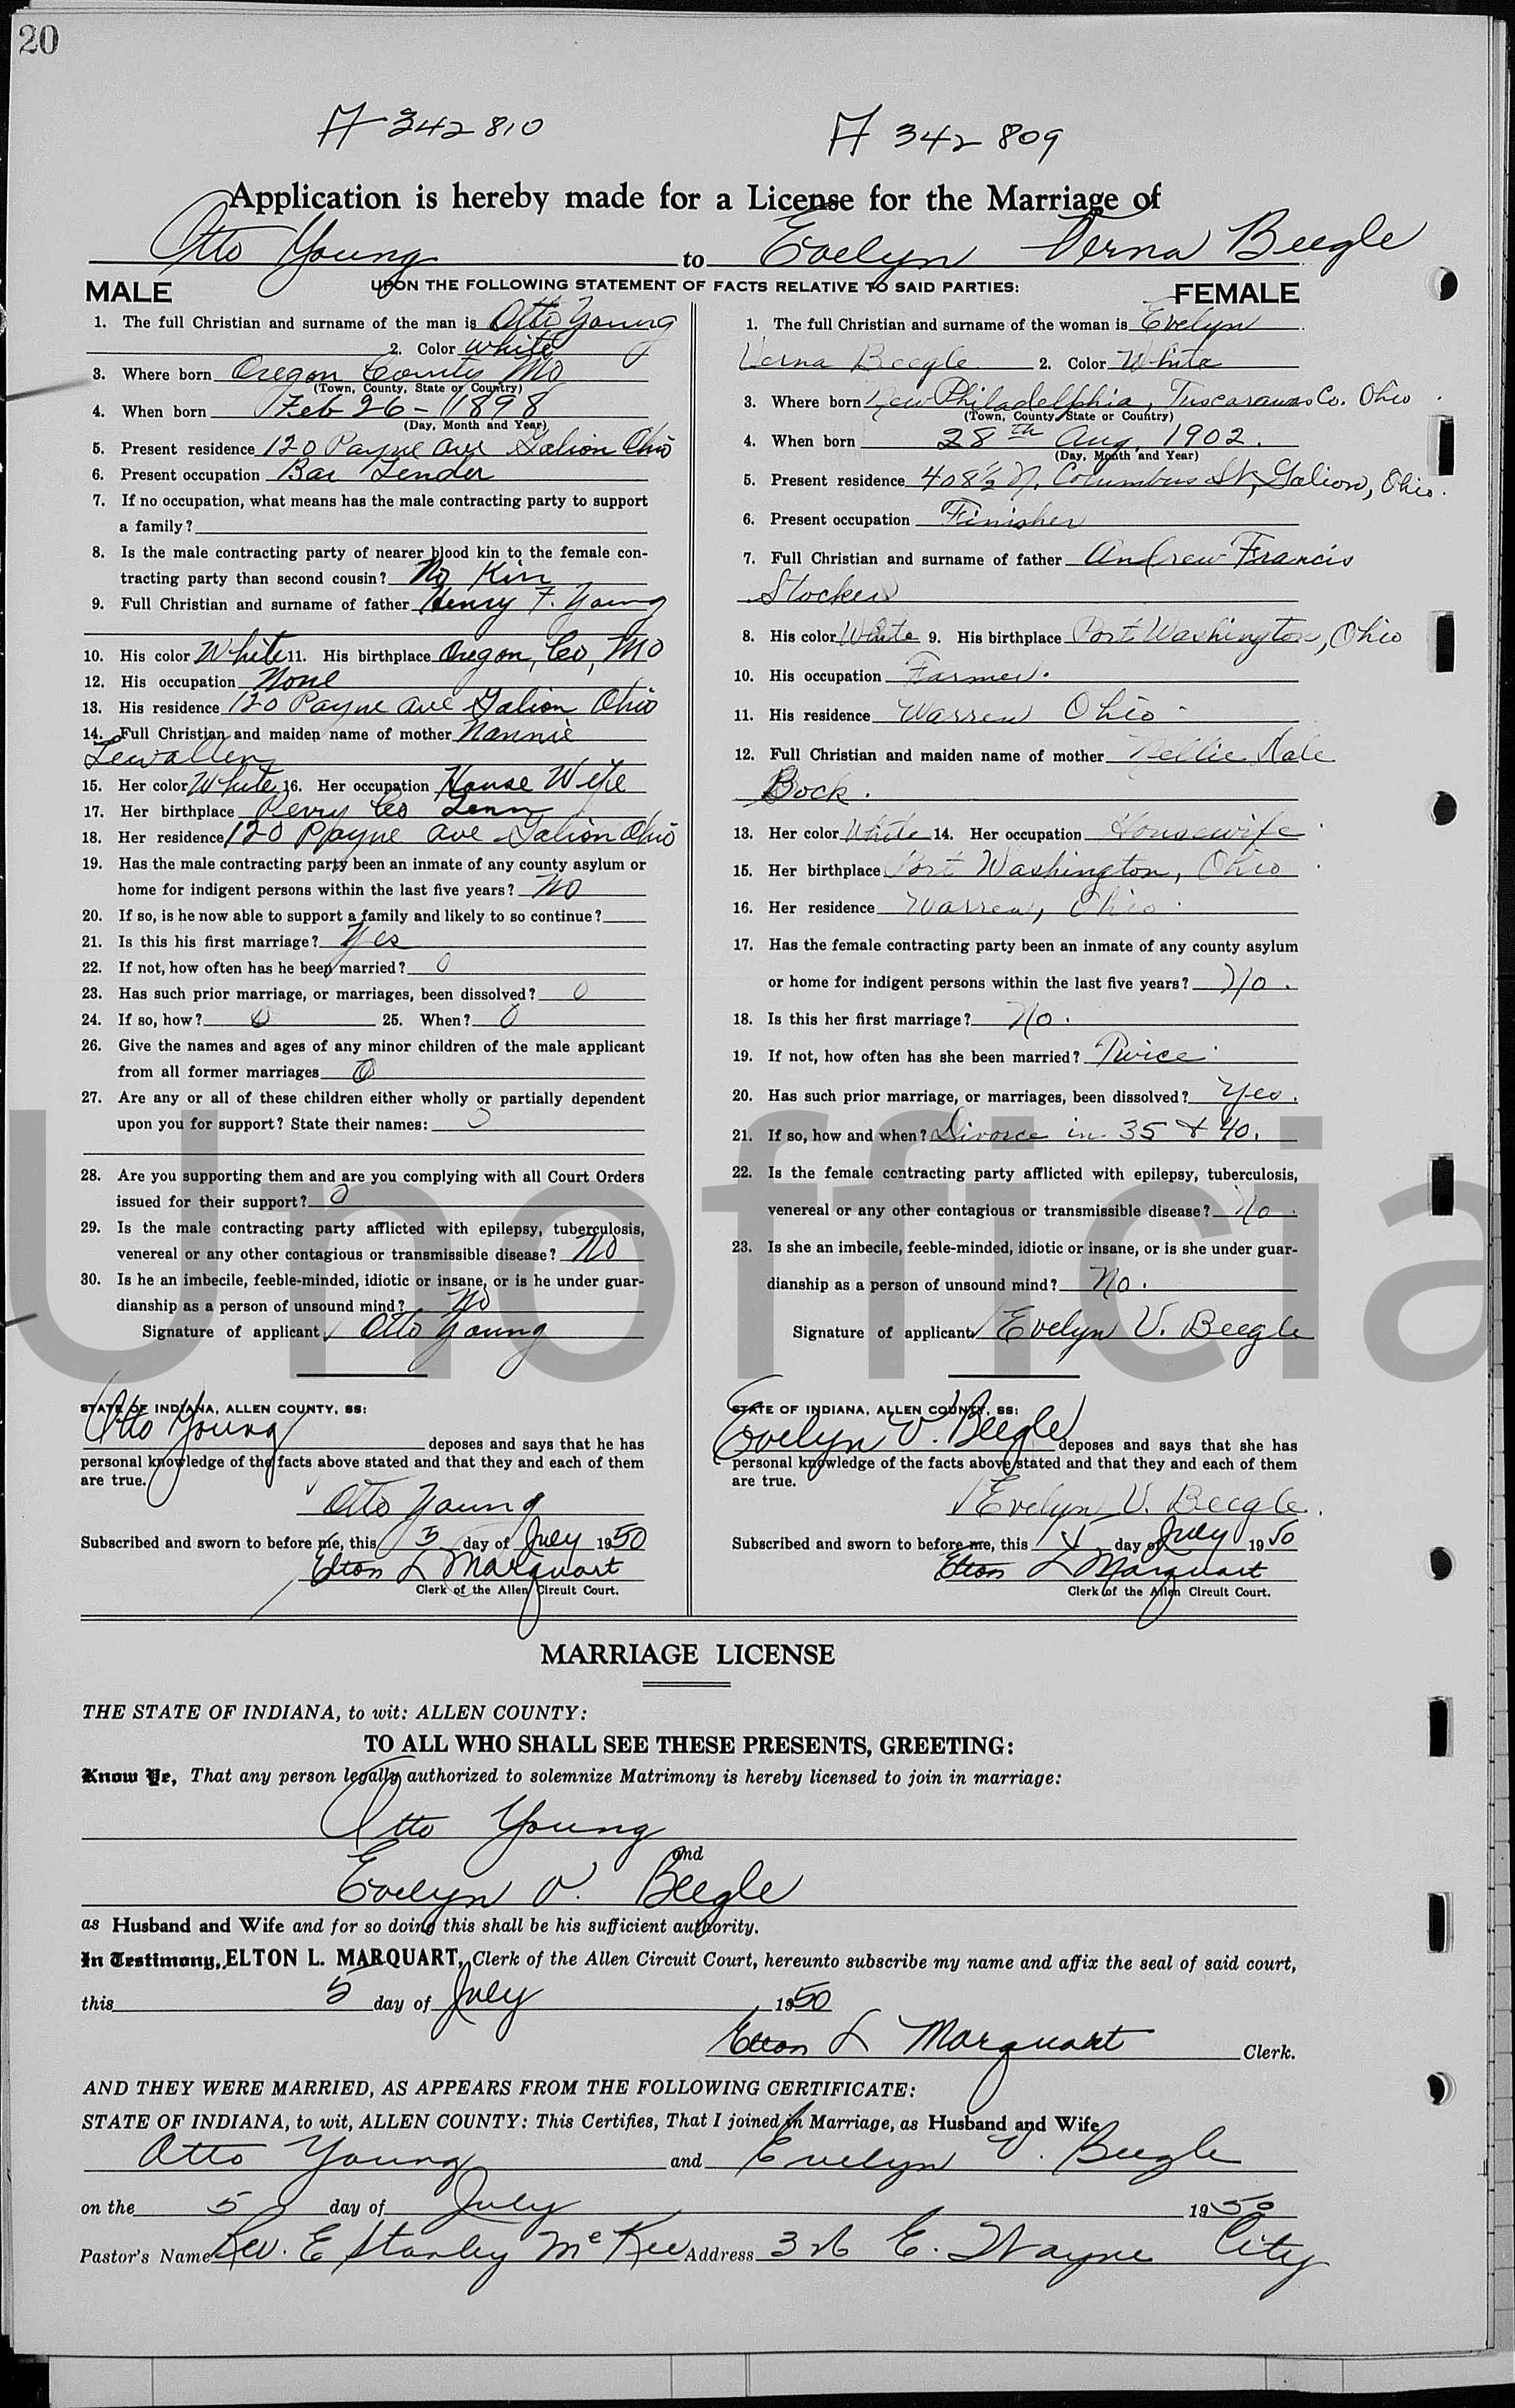 20
A 342810
A 342809
Application is hereby made for a License for the Marriage of
Otto Young to Evelyn Verna Beegle
UPON THE FOLLOWING STATEMENT OF FACTS RELATIVE TO SAID PARTIES:
MALE
1. The full Christian and surname of the man is Otto Young
2. Color White
3. Where born Oregon County Mo
(Town, County, State or Country)
4. When born Feb 26 - 1898
(Day, Month and Year)
5. Present residence 120 Payne ave Galion Ohio
6. Present occupation Bar Tender
7. If no occupation, what means has the male contracting party to support
a family?
8. Is the male contracting party of nearer blood kin to the female con-
tracting party than second cousin? No Kin
9. Full Christian and surname of father Henry F. Young
10. His color White 11. His birthplace Oregon, Co, Mo
12. His occupation None
13. His residence 120 Payne ave Galion Ohio
14. Full Christian and maiden name of mother Nannie
Lewallen
15. Her color White 16. Her occupation House Wife
17. Her birthplace Perry Co Tenn
18. Her residence 120 Payne ave Galion Ohio
19. Has the male contracting party been an inmate of any county asylum or
home for indigent persons within the last five years? No
20. If so, is he now able to support a family and likely to so continue?
21. Is this his first marriage? Yes
22. If not, how often has he been married? 0
23. Has such prior marriage, or marriages, been dissolved? 0
24. If so, how? 0 25. When? 0
26. Give the names and ages of any minor children of the male applicant
from all former marriages 0
27. Are any or all of these children either wholly or partially dependent
upon you for support? State their names: 0
28. Are you supporting them and are you complying with all Court Orders
issued for their support? 0
29. Is the male contracting party afflicted with epilepsy, tuberculosis,
venereal or any other contagious or transmissible disease? No
30. Is he an imbecile, feeble-minded, idiotic or insane, or is he under guar-
dianship as a person of unsound mind? No
Signature of applicant Otto Young
STATE OF INDIANA, ALLEN COUNTY, SS:
Otto Young deposes and says that he has
personal knowledge of the facts above stated and that they and each of them
are true.
Otto Young
Subscribed and sworn to before me, this 5 day of July 1950
Elton L Marquart
Clerk of the Allen Circuit Court.
FEMALE
1. The full Christian and surname of the woman is Evelyn
Verna Beegle 2. Color White
3. Where born New Philadelphia, Tuscarawas Co. Ohio
(Town, County, State or Country)
4. When born 28th Aug. 1902.
(Day, Month and Year)
5. Present residence 408½ N. Columbus St, Galion, Ohio.
6. Present occupation Finisher
7. Full Christian and surname of father Andrew Francis
Stocker
8. His color White 9. His birthplace Port Washington, Ohio
10. His occupation Farmer.
11. His residence Warren Ohio
12. Full Christian and maiden name of mother Nellie Dale
Bock.
13. Her color White 14. Her occupation Housewife
15. Her birthplace Port Washington, Ohio
16. Her residence Warren, Ohio
17. Has the female contracting party been an inmate of any county asylum
or home for indigent persons within the last five years? No.
18. Is this her first marriage? No.
19. If not, how often has she been married? Twice
20. Has such prior marriage, or marriages, been dissolved? Yes.
21. If so, how and when? Divorce in 35 & 40.
22. Is the female contracting party afflicted with epilepsy, tuberculosis,
venereal or any other contagious or transmissible disease? No.
23. Is she an imbecile, feeble-minded, idiotic or insane, or is she under guar-
dianship as a person of unsound mind? No.
Signature of applicant Evelyn V. Beegle
STATE OF INDIANA, ALLEN COUNTY, SS:
Evelyn V. Beegle deposes and says that she has
personal knowledge of the facts above stated and that they and each of them
are true.
Evelyn V. Beegle.
Subscribed and sworn to before me, this 5 day of July 1950
Elton L Marquart
Clerk of the Allen Circuit Court.
Unofficia
MARRIAGE LICENSE
THE STATE OF INDIANA, to wit: ALLEN COUNTY:
TO ALL WHO SHALL SEE THESE PRESENTS, GREETING:
Know Ye, That any person legally authorized to solemnize Matrimony is hereby licensed to join in marriage:
Otto Young
and
Evelyn V. Beegle
as Husband and Wife and for so doing this shall be his sufficient authority.
In Testimony, ELTON L. MARQUART, Clerk of the Allen Circuit Court, hereunto subscribe my name and affix the seal of said court,
this 5 day of July 1950
Elton L Marquart Clerk.
AND THEY WERE MARRIED, AS APPEARS FROM THE FOLLOWING CERTIFICATE:
STATE OF INDIANA, to wit, ALLEN COUNTY: This Certifies, That I joined in Marriage, as Husband and Wife
Otto Young and Evelyn V. Beegle
on the 5 day of July 1950
Pastor's Name Rev. E Stanley McKee Address E. Wayne City